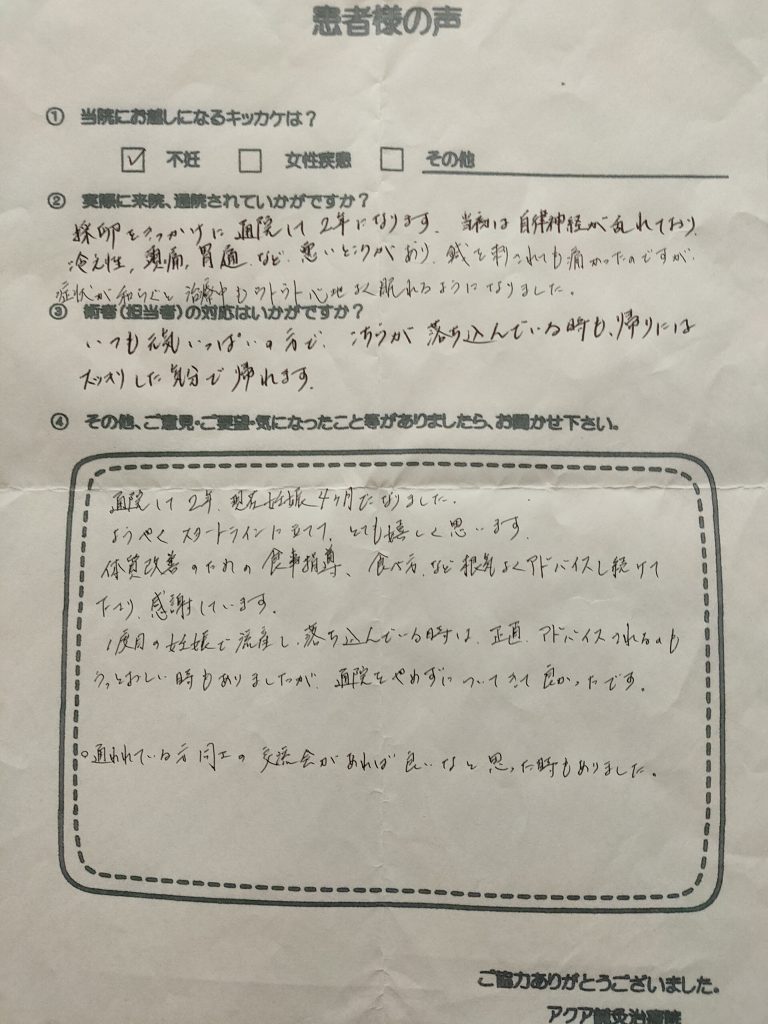 患者様の声
① 当院にお越しになるキッカケは？
☑ 不妊 □ 女性疾患 □ その他
② 実際に来院、通院されていかがですか？
採卵をきっかけに通院して2年になります。当初は自律神経が乱れており、
冷え性、頭痛、胃痛など、悪いところがあり、鍼を刺されても痛かったのですが、
症状が和らぐと治療中もウトウト心地よく眠れるようになりました。
③ 術者(担当者)の対応はいかがですか？
いつも元気いっぱいの方で、こちらが落ち込んでいる時も、帰りには
スッキリした気分で帰れます。
④ その他、ご意見・ご要望・気になったこと等がありましたら、お聞かせ下さい。
通院して2年、現在妊娠4ヶ月になりました。
ようやくスタートラインに立てて、とても嬉しく思います。
体質改善のための食事指導、食べ方、など根気よくアドバイスし続けて
下さり、感謝しています。
1度目の妊娠で流産し、落ち込んでいる時は、正直、アドバイスされるのも
うっとおしい時もありましたが、通院をやめずについてきて良かったです。
○通われている方同士の交流会があれば良いなと思った時もありました。
ご協力ありがとうございました。
アクア鍼灸治療院